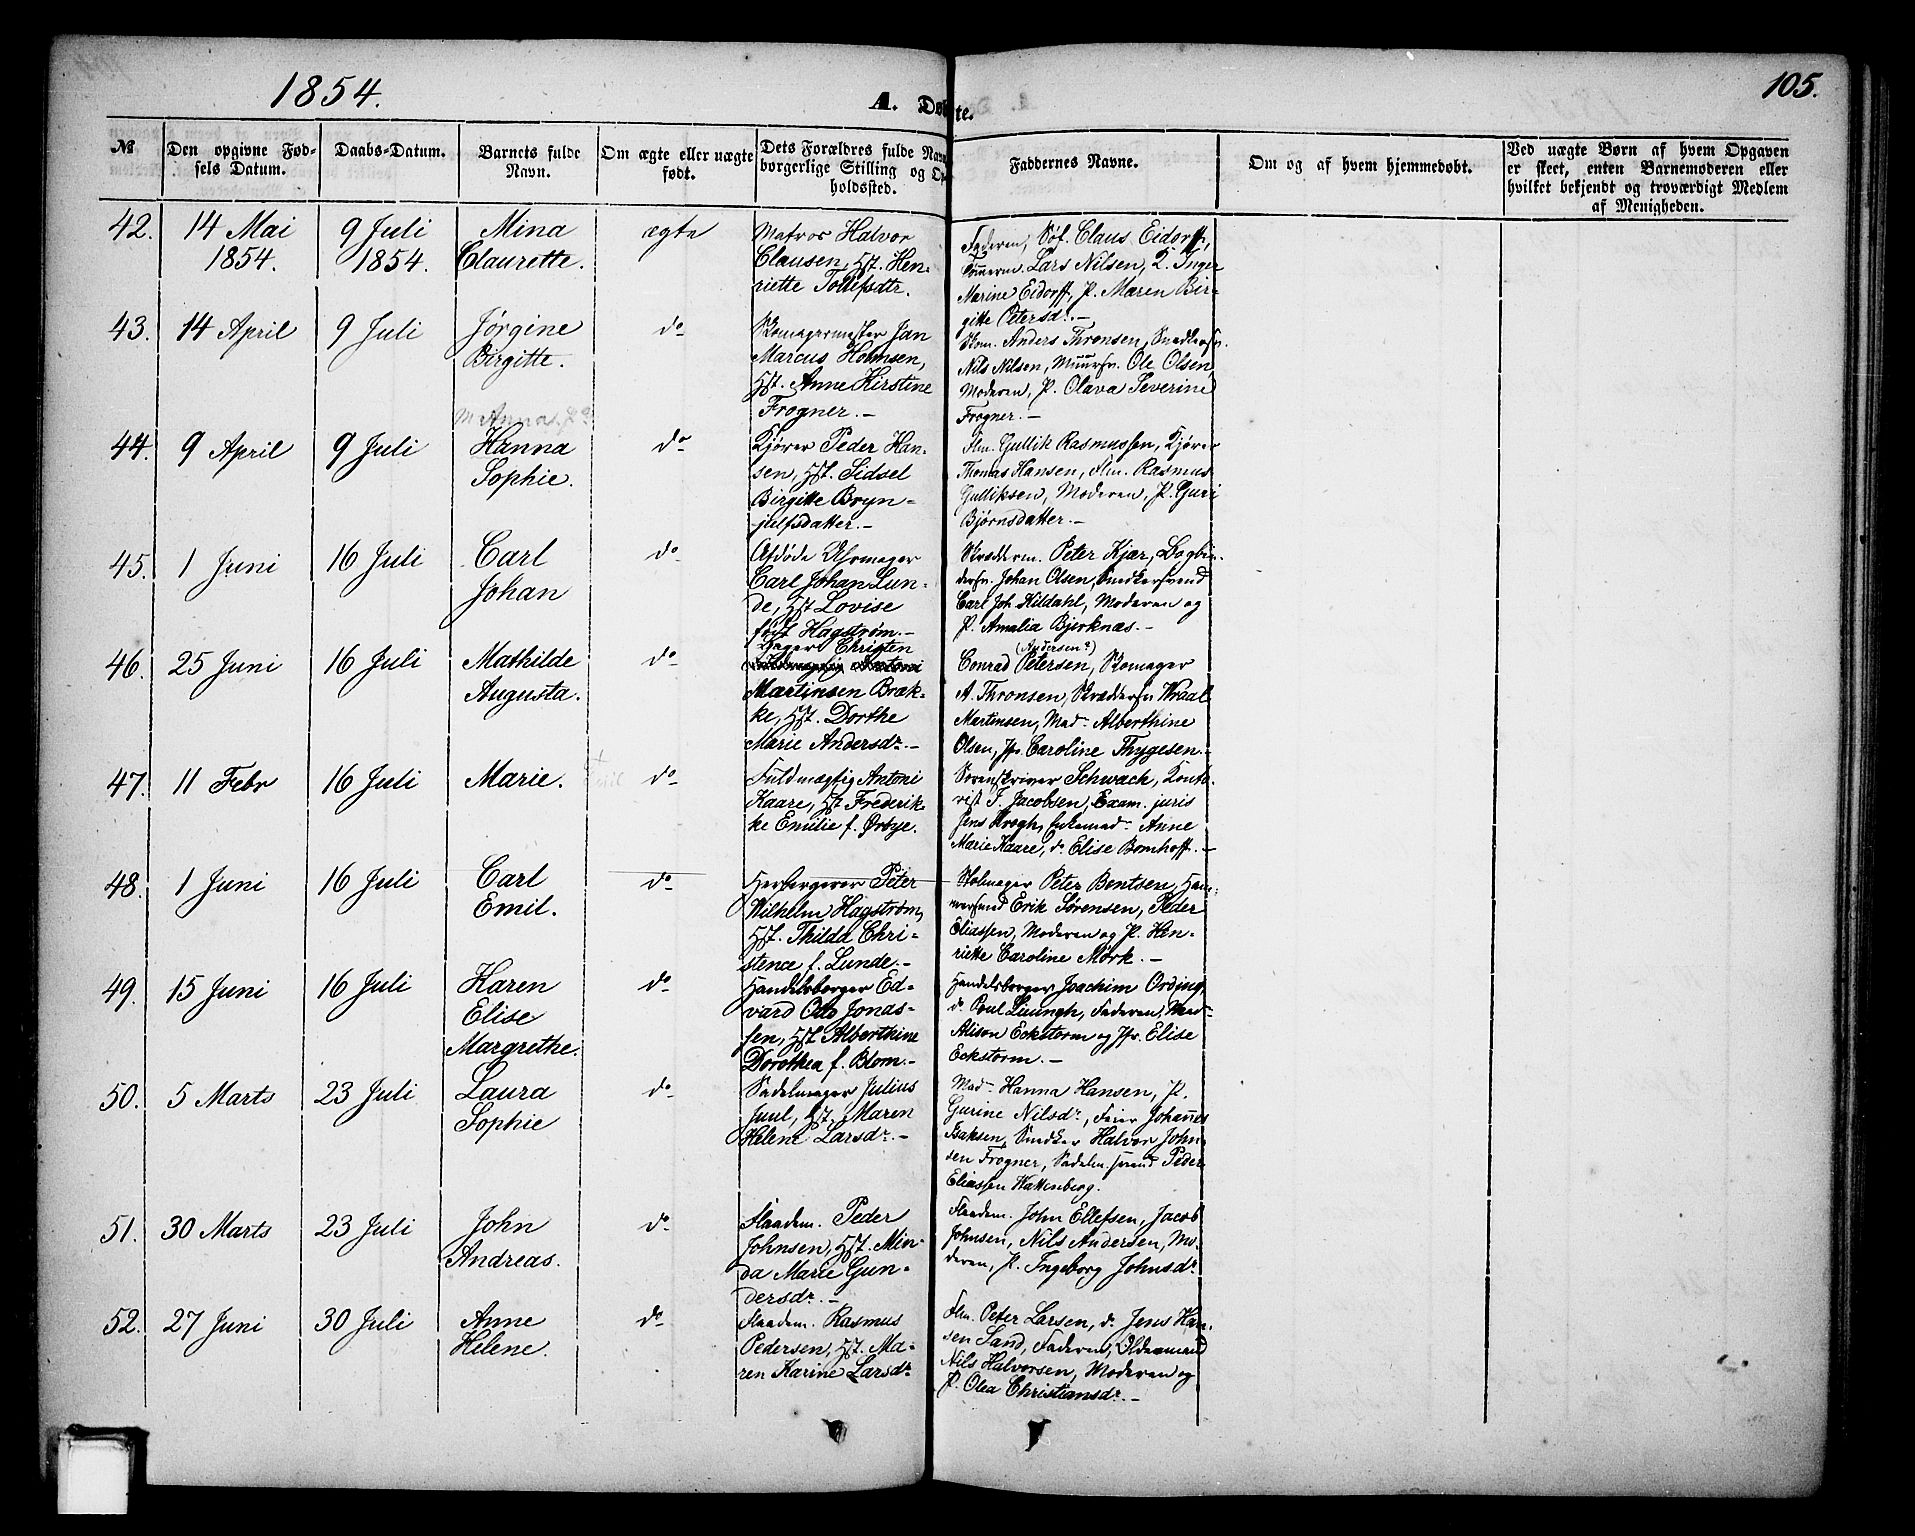 1854.
A. Døbte.
105.
№
Den opgivne Fød-
sels Datum.
Daabs-Datum.
Barnets fulde
Navn.
Om ægte eller uægte
født.
Dets Forældres fulde Navn
borgerlige Stilling og Op-
holdssted.
Faddernes Navne.
Om og af hvem hjemmedøbt.
Ved uægte Børn af hvem Opgaven
er skeet, enten Barnemoderen eller
hvilket bekjendt og troværdigt Medlem
af Menigheden.
42.
14 Mai
1854.
9 Juli
1854.
Mina
Claurette.
ægte
Matros Halvor
Clausen, Hst. Hen-
riette Tollefsdtr.
Faderen, Søf. Claus Eidorff,
Tømerm. Lars Nilsen, Q. Inger
Marine Eidorff, P. Maren Bir-
gitte Petersdr. -
43.
14 April
9 Juli
Jørgine
Birgitte.
do
Skomagermester Jan
Marcus Holmsen,
Hst. Anne Kirstine
Frogner. -
Skom. Anders Thronsen, Snedkersv.
Nils Nilsen, Muursv. Ole Olsen,
Moderen, P. Olava Severine
Frogner. -
44.
9 April
9 Juli
Anna
Hanna
Sophie.
do
Kjører Peder Han-
sen, Hst. Sidsel
Birgitte Bryn-
julfsdatter. -
Flm. Gullik Rasmussen, Kjører
Thomas Hansen, Flm. Rasmus
Gulliksen, Moderen, P. Guri
Bjørnsdatter. -
45.
1 Juni
16 Juli
Carl
Johan
do
Afdøde Uhrmager
Carl Johan Lun-
de, Hst Lovise
født Hagstrøm. -
Skrædderm. Peter Kjær, Bogbin-
dersv. Johan Olsen, Snedkersvend
Carl Joh Kildahl, Moderen og
P. Amalia Bjerknæs. -
46.
25 Juni
16 Juli
Mathilde
Augusta.
do
Bager Christen
Martinsen Bræk-
ke, Hst. Dorthe
Marie Andersdr. -
(Andersen?)
Conrad Petersen, Skomager
A. Thronsen, Skræddersv Wraal
Martinsen, Mad. Alberthine
Olsen, Jfr. Caroline Thygesen. -
47.
11 Febr
16 Juli
Marie.
do
Fuldmægtig Antoni
Kaare, Hst Frederik-
ke Emilie f. Ørbye.
Sorenskriver Schwach, Konto-
rist F. Jacobsen, Exam. juris
Jens Krogh, Enkemad. Anne
Marie Kaare, do Elise Bomhoff. -
48.
1 Juni
16 Juli
Carl
Emil.
do
Herbergerer Peter
Wilhelm Hagstrøm,
Hst. Thilda Chri-
stence f. Lunde. -
Stolmager Peter Bentsen, Ham-
mersmed Erik Sørensen, Peder
Eliassen, Moderen og P. Hen-
riette Caroline Mørk. -
49.
15 Juni
16 Juli
Karen
Elise
Margrethe.
do
Handelsborger Ed-
vard Odo Jonas-
sen, Hst Alberthine
Dorothea f. Blom. -
Handelsborger Joachim Ording,
do Poul Liuungh, Faderen, Mad
Alison Eckstorm og Jfr. Elise
Eckstorm. -
50.
5 Marts
23 Juli
Laura
Sophie
do
Sadelmager Julius
Juul, Hst. Maren
Helene Larsdr. -
Mad. Hanna Hansen, P.
Gurine Nilsdr., Feier Johannes
Isaksen, Snedker Halvor John-
sen Frogner, Sadelm. svend Peder
Eliassen Wattenberg.
51.
30 Marts
23 Juli
John
Andreas.
do
Flaadem. Peder
Johnsen, Hst. Min-
da Marie Gun-
dersdr. -
Flaadem. John Ellefsen, Jacob
Johnsen, Nils Andersen, Mo-
deren, P. Ingeborg Johnsdr
52.
27 Juni
30 Juli
Anne
Helene.
do
Flaadem. Rasmus
Pedersen, Hst. Ma-
ren Karine Larsdr
Flm. Peter Larsen, do Jens Han-
sen Sand, Faderen, Oldermand
Nils Halvorsen, Moderen og
P. Olea Christiansdr. -